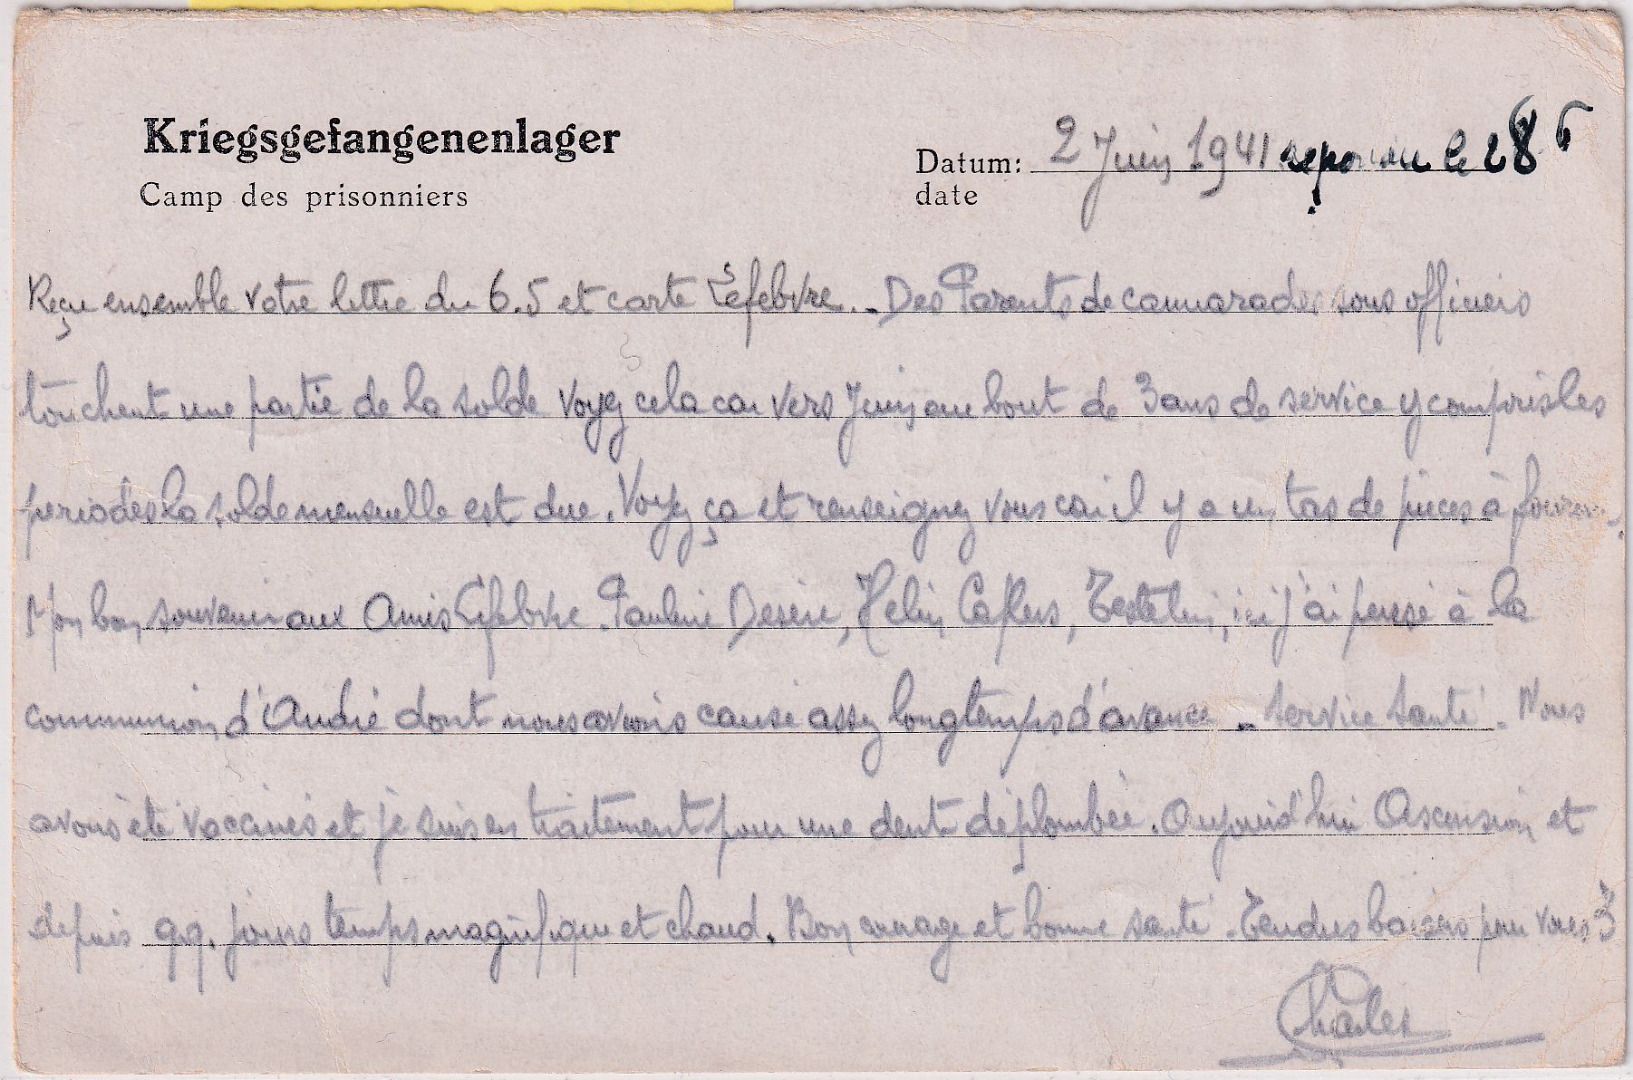 Kriegsgefangenenlager
Camp des prisonniers
Datum: 2 Juin 1941 le 28 6
date
Reçu ensemble votre lettre du 6.5 et carte Lefebvre. - Des Parents de camarades sous officiers
touchent une partie de la solde voyez cela car vers Juin au bout de 3 ans de service y compris les
periodes la solde mensuelle est due. Voyez ça et renseignez vous car il y a un tas de pieces à fournir.
Mon bon souvenir aux Amis Lefebvre. Pauline Desiré, Helin Caflers, Testelin, ici j'ai pensé à la
communion d'André dont nous avions causé assez longtemps d'avance - Service Santé. Nous
avons été vaccinés et je suis en traitement pour une dent déplombée. Aujourd'hui Ascension et
depuis qq. jours temps magnifique et chaud. Bon courage et bonne santé. Tendres baisers pour vous 3
Charles